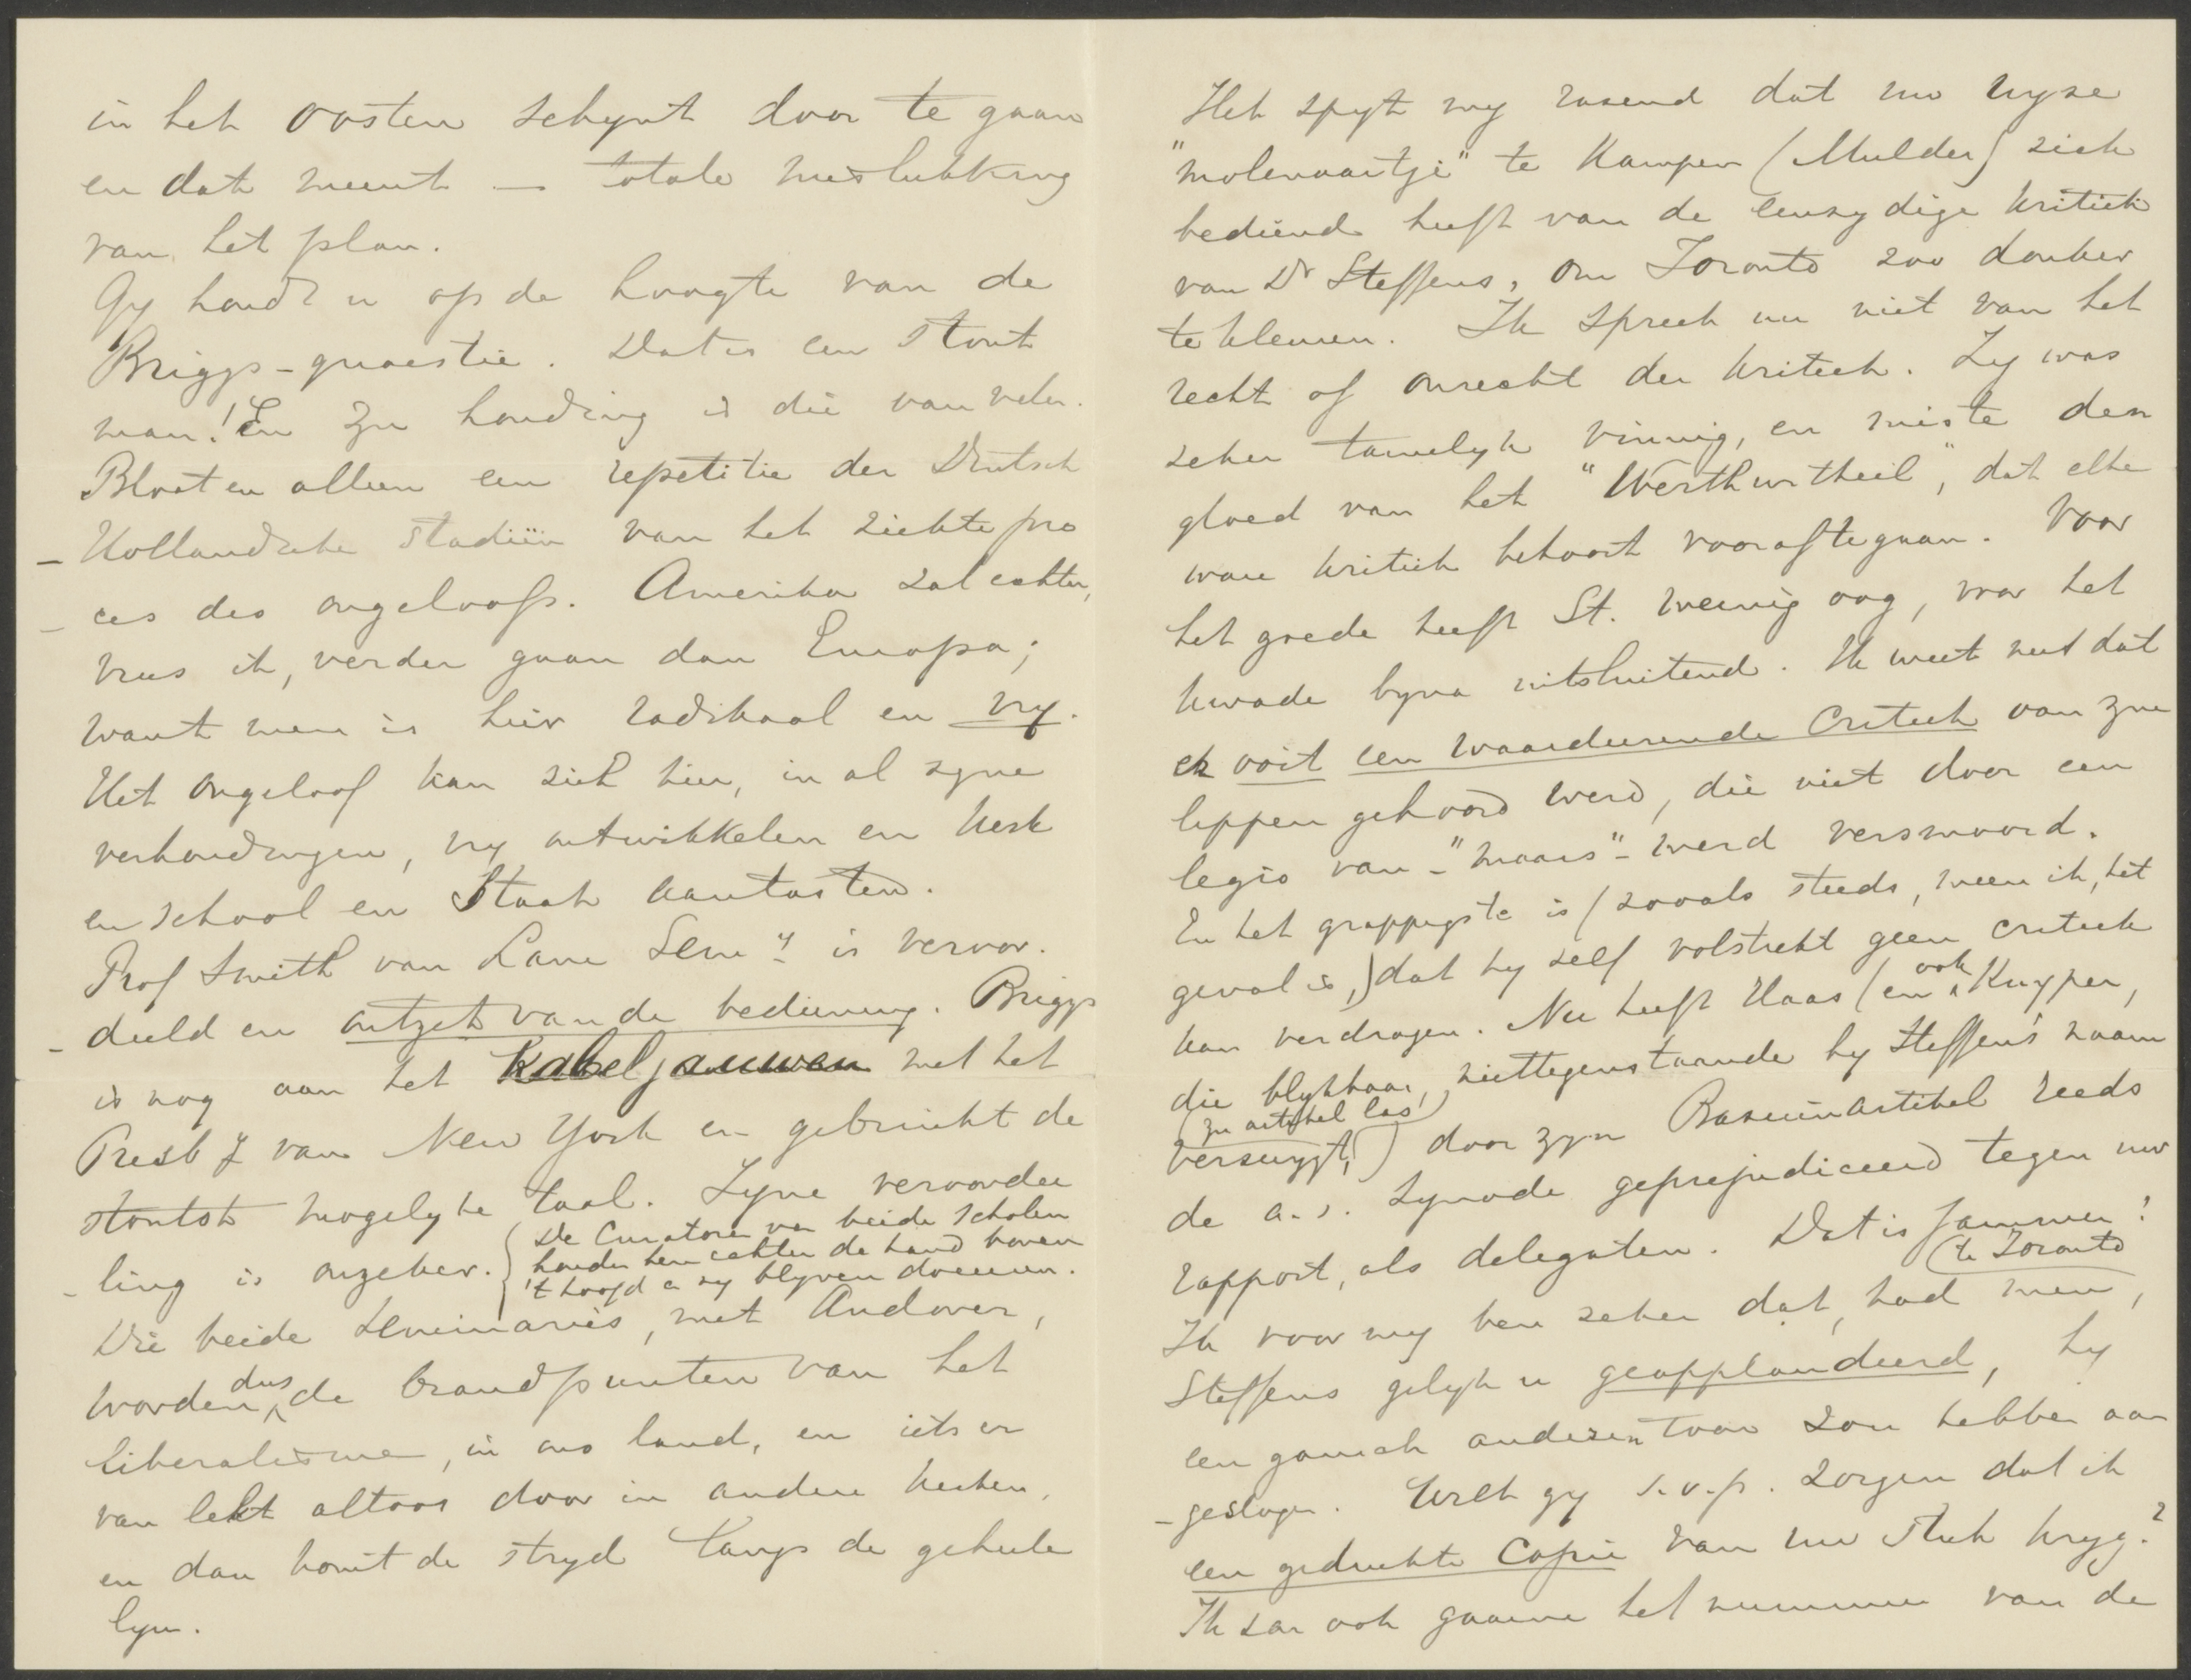 in het Oosten schynt door te gaan
en dat meent — totale mislukking
van het plan.
Gy houdt u op de hoogte van de
Briggs-quaestie. Dat is een stout
man! En zyn houding is die van velen.
Bloot en alleen een repetitie der Deutsch
- Hollandsche stadiën van het ziekte pro
- ces des ongeloofs. Amerika zal echter,
vrees ik, verder gaan dan Europa;
want men is hier radikaal en vry.
Het ongeloof kan zich hier, in al zyne
verhoudingen, vry ontwikkelen en kerk
en school en Staat aantasten.
Prof Smith van Lane Semy is veroor.
- deeld en ontzet van de bediening. Briggs
is nog aan het Kabeljauwen met het
Presby van New York en gebruikt de
stoutst mogelyke taal. Zyne veroordee
- ling is onzeker. (De Curatoren van beide scholen
houden hen echter de hand boven
't hoofd en zy blyven doceeren.
Die beide seminaries, met Andover,
worden dus de brandpunten van het
liberalisme, in ons land, en iets er
van lekt altoos door in andere kerken,
en dan komt de stryd langs de geheele
lyn.
Het spyt my razend dat uw wyze
"molenaartje" te Kampen (Mulder) zich
bediend heeft van de eenzydige kritiek
van Dr Steffens, om Toronto zoo donker
te kleuren. Ik spreek nu niet van het
recht of onrecht der kritiek. Zy was
zeker tamelyk vinnig, en miste den
gloed van het "Werthurtheil", dat elke
ware kritiek behoort vooraf te gaan. Voor
het goede heeft St. weinig oog, voor het
kwade byna uitsluitend. Ik weet niet dat
er ooit een waardeerende Critiek van zyne
lippen gehoord werd, die niet door een
legio van - "maars" - werd versmoord.
En het grappigste is (zooals steeds, meen ik, het
geval is,) dat hy zelf volstrekt geen critiek
kan verdragen. Nu heeft Haas (en ook Kuyper,
die blykbaar, niettegenstaande hy Steffens naam
(zyn artikel las)
verzwygt,) door zyn Bazuinartikel reeds
de a.s. Synode geprejudiceerd tegen uw
rapport, als delegaten. Dat is jammer!
Ik voor my ben zeker dat, had men, (te Toronto
Steffens gelyk u geapplaudeerd, hy
een gansch anderen toon zou hebben aan
- geslagen. Wilt gy s.v.p. zorgen dat ik
een gedrukte Copie van uw stuk kryg?
Ik zar ook gaarne het nummer van de